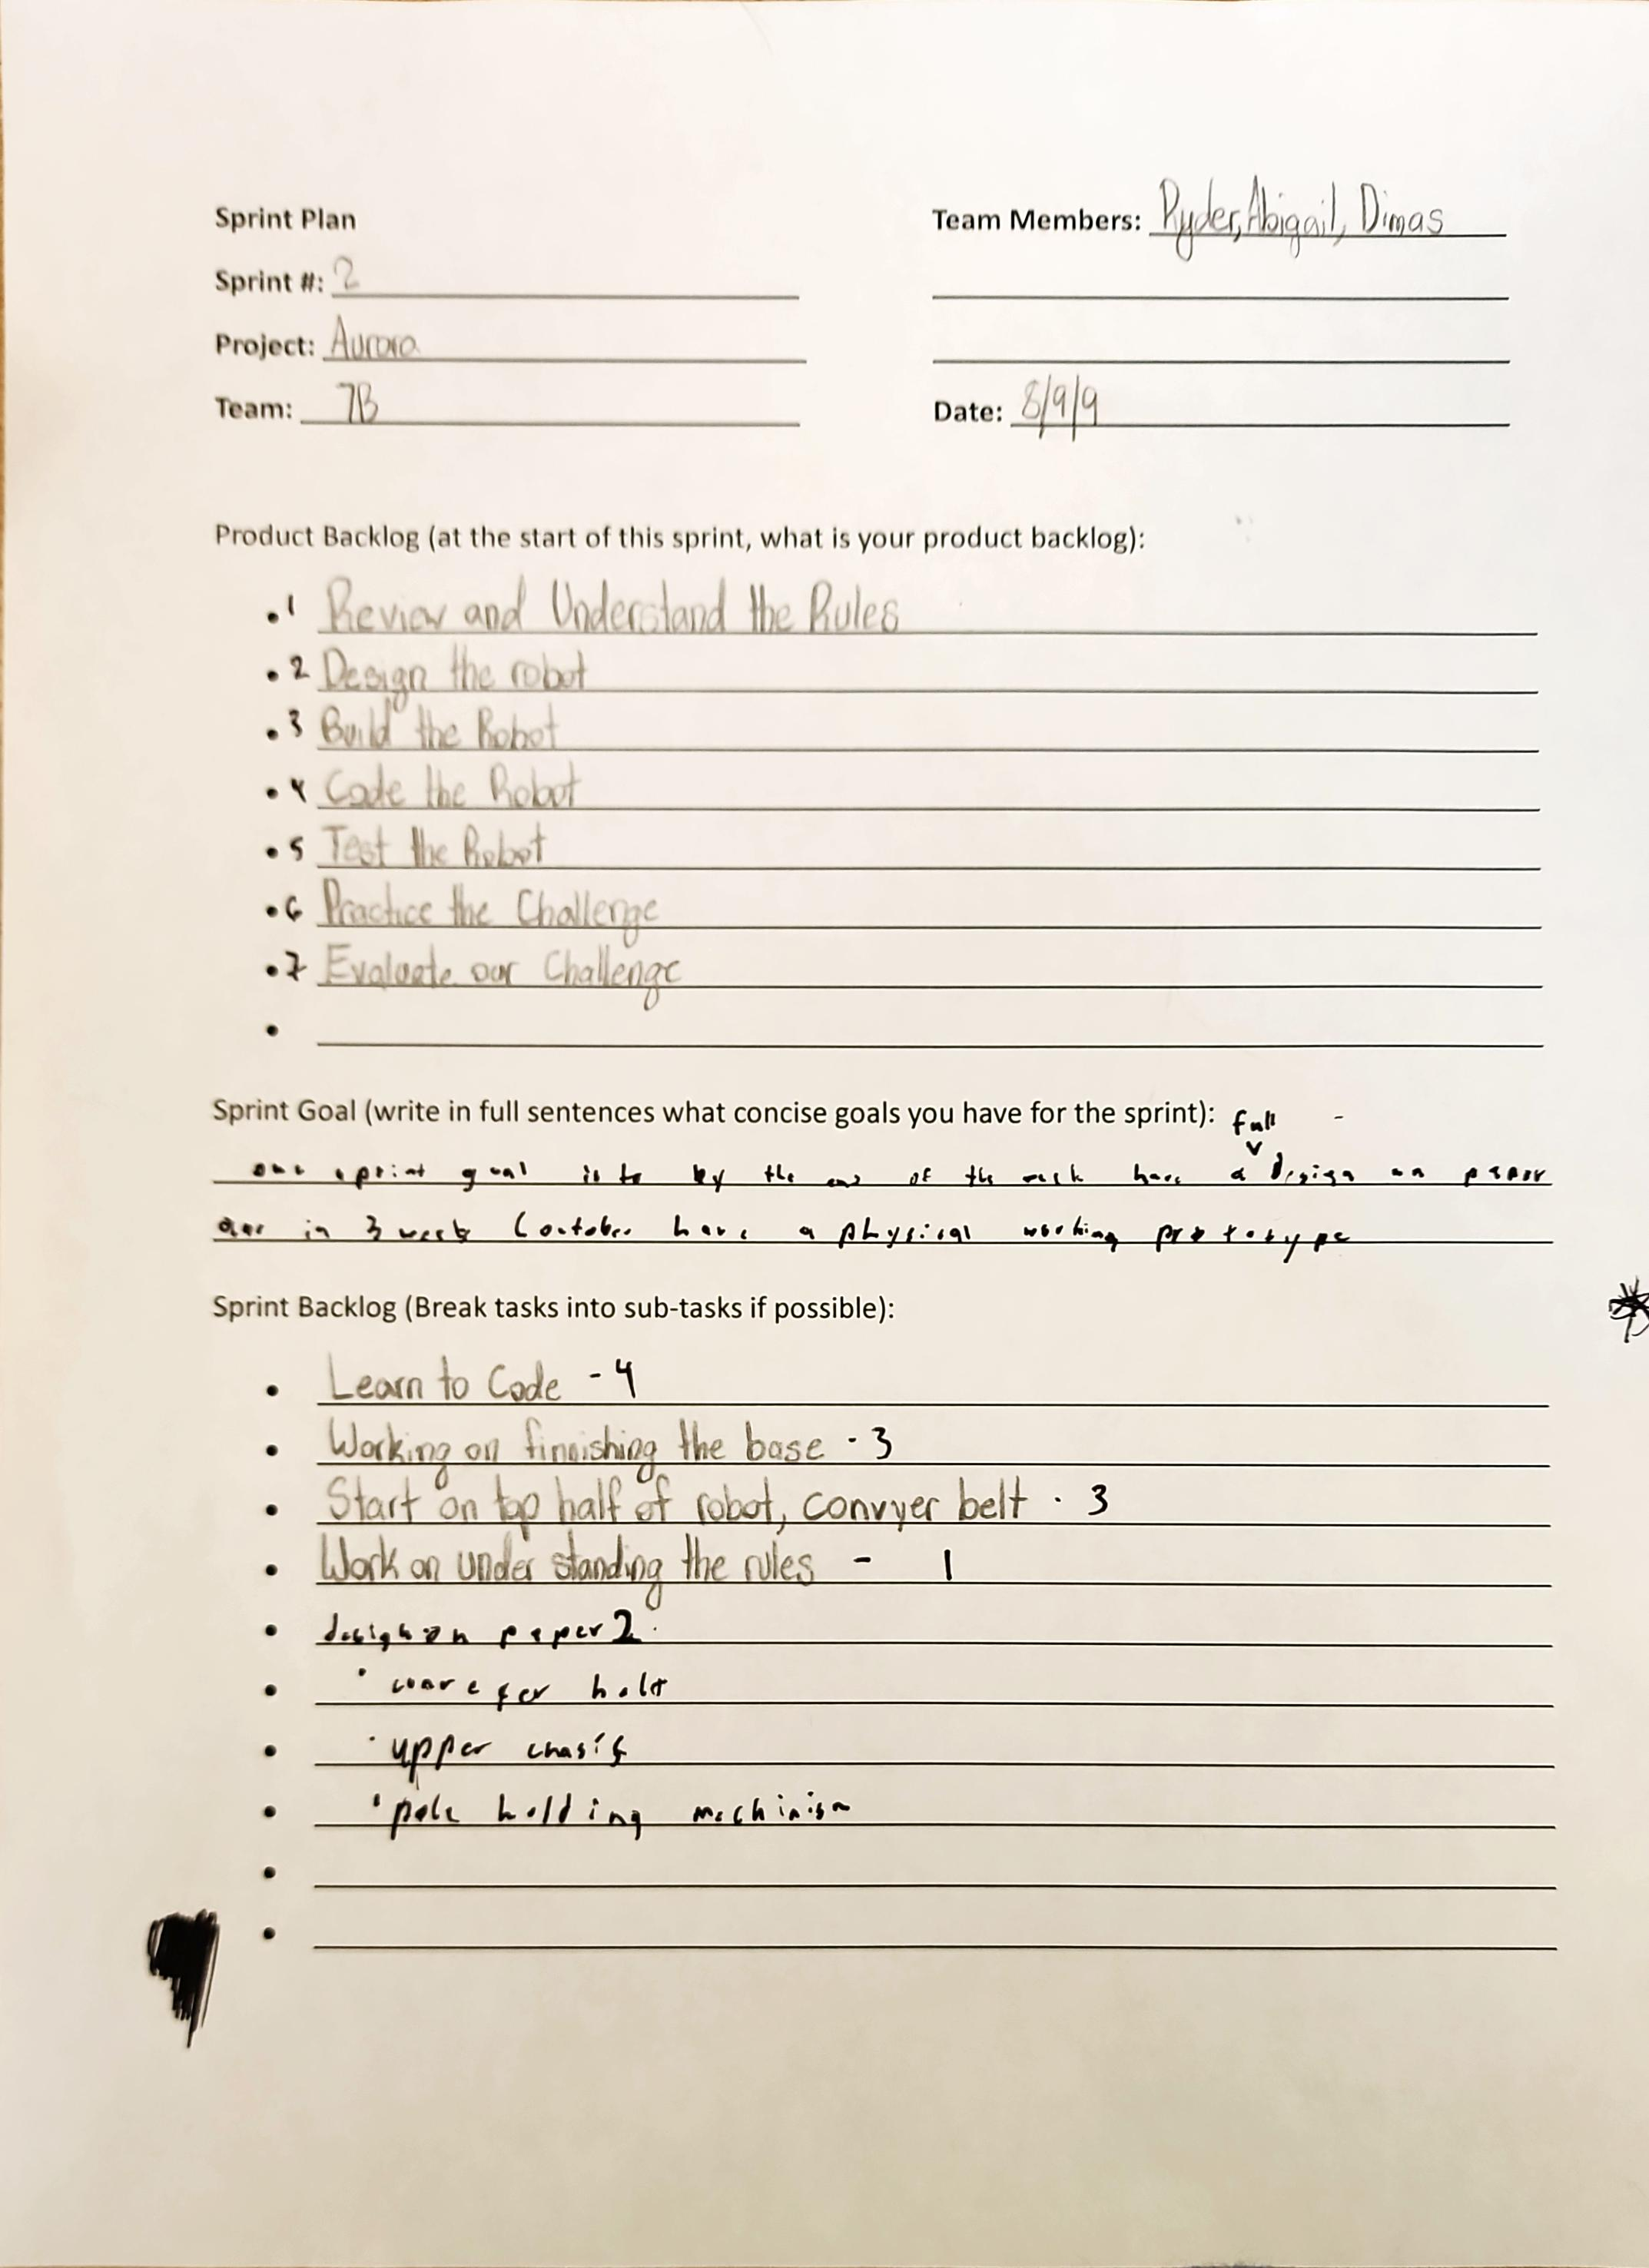 Sprint Plan
Team Members: Ryder, Abigail, Dimas
Sprint #: 2
Project: Aurora
Team: 7B
Date: 8/9/9
Product Backlog (at the start of this sprint, what is your product backlog):
• 1 Review and Understand the Rules
• 2 Design the robot
• 3 Build the Robot
• 4 Code the Robot
• 5 Test the Robot
• 6 Practice the Challenge
• 7 Evaluate our Challenge
•
Sprint Goal (write in full sentences what concise goals you have for the sprint): full
our sprint goal is to by the end of the week have a design on paper
in 3 weeks (october have a physical working prototype
Sprint Backlog (Break tasks into sub-tasks if possible):
• Learn to Code - 4
• Working on finnishing the base - 3
• Start on top half of robot, convyer belt - 3
• Work on under standing the rules - 1
• design on paper 2
•
• · upper chasis
• · pole holding mechinism
•
•